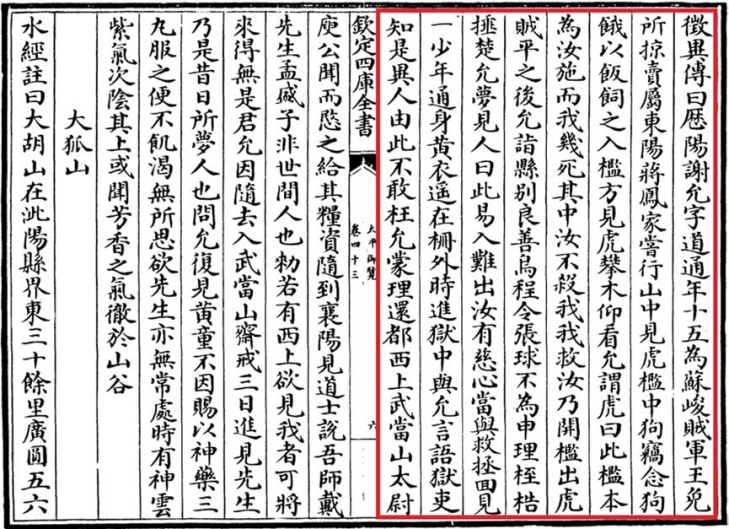 徵異傳曰歷陽謝允字道通年十五為蘇峻賊軍王免
所掠賣屬東陽蔣鳳家嘗行山中見虎檻中狗竊念狗
餓以飯飼之入檻方見虎攀木仰看允謂虎曰此檻本
為汝施而我幾死其中汝不殺我我救汝乃開檻出虎
賊平之後允詣縣别良善烏程令張球不為申理桎梏
捶楚允夢見人曰此易入難出汝有慈心當與救拯回見
一少年通身黄衣遥在柵外時進獄中與允言語獄吏
知是異人由此不敢枉允蒙理還都西上武當山太尉
欽定四庫全書
太平御覽
卷四十三
六
庾公聞而愍之給其糧資隨到襄陽見道士說吾師戴
先生孟威子非世間人也勑若有西上欲見我者可將
來得無是君允因隨去入武當山齋戒三日進見先生
乃是昔日所夢人也問允復見黄童不因賜以神藥三
丸服之便不飢渴無所思欲先生亦無常處時有神雲
紫氣次陰其上或聞芳香之氣徹於山谷
大狐山
水經註曰大胡山在泚陽縣界東三十餘里廣圓五六